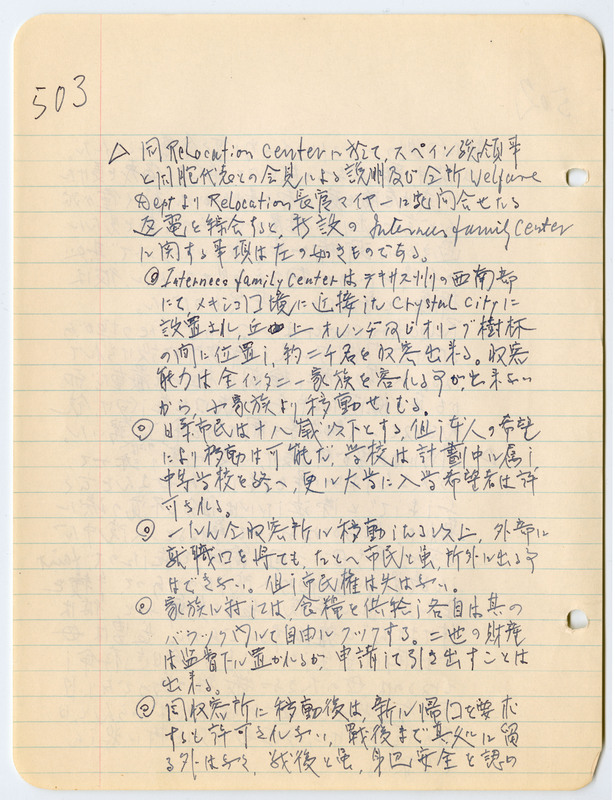 503
△ 同Relocation Centerに於て、スペイン総領事
と同胞代表との会見による説明及び全所Welfare
DeptよりRelocation長官マイヤーに問合せたる
返電を綜合すると、新設のInternees family Center
に関する事項は左の如きものである。
◎Internees family Centerはテキサス州の西南部
にて、メキシコ国境に近接したCrystal Cityに
設置され 丘上 オレンヂ及びオリーブ樹林
の間に位置し、約二千名を収容出来る。収容
能力は全インターニー家族を容れる事が出来ない
から、小家族より移動せしむる。
◎ 日系市民は十八歳以下とする、但し本人の希望
により移動は可能だ、学校は計劃中に属し
中等学校を経へ、更に大学に入学希望者は許
可される。
◎ 一たん全収容所に移動したる以上、外部に
就職口を得ても、たとへ市民と虽、所外に出る事
はできない。但し市民権は失はない。
◎ 家族に対しては、食糧を供給し各自は其の
バラック内にて自由にクックする。二世の財産
は監督下に置かれるが、申請して引き出すことは
出来る。
◎ 同収容所に移動後は、新に帰国を要求
すると許可されない、戦後まで其処に留
る外はなく、戦後と虽、身辺安全と認め